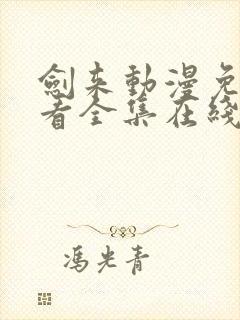 劍来動漫免
看全集在綫
馮光青